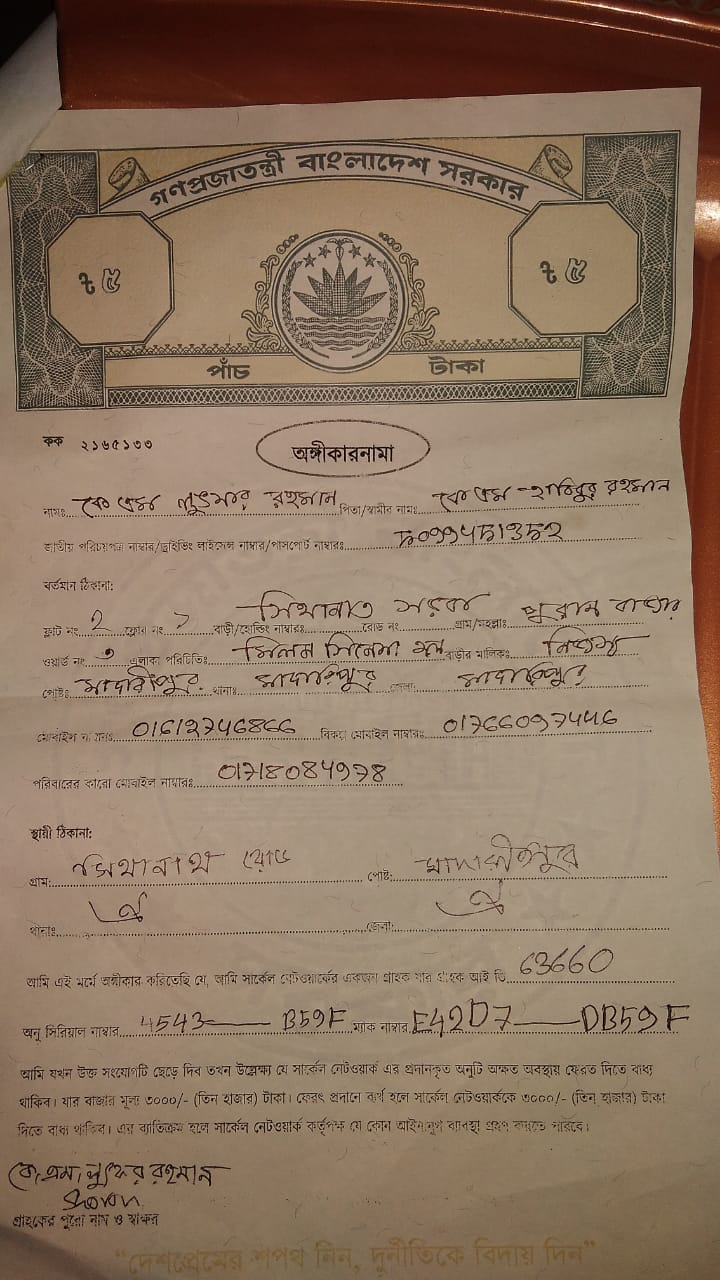 গণপ্রজাতন্ত্রী বাংলাদেশ সরকার
৳ ৫ ৳ ৫
পাঁচ টাকা
কক ২১৬৫১৩৩
অঙ্গীকারনামা
নামঃ কে এম লুৎফার রহমান পিতা/স্বামীর নামঃ কে এম হাবিবুর রহমান
জাতীয় পরিচয়পত্র নাম্বার/ড্রাইভিং লাইসেন্স নাম্বার/পাসপোর্ট নাম্বারঃ
বর্তমান ঠিকানা:
ফ্লাট নং 2 ফ্লোর নং বাড়ী/হোল্ডিং নাম্বারঃ রোড নং সড়ক গ্রাম/মহল্লাঃ পুরান বাজার
ওয়ার্ড নং ৩ এলাকা পরিচিতিঃ মিলন সিনেমা হল বাড়ীর মালিকঃ নিজস্ব
পোষ্টঃ মাদারীপুর থানাঃ মাদারিপুর জেলা মাদারিপুর
মোবাইল নাম্বারঃ 01612746866 বিকল্প মোবাইল নাম্বারঃ 01766097446
পরিবারের কারো মোবাইল নাম্বারঃ 01718084978
স্থায়ী ঠিকানা:
গ্রাম: রোড পোষ্ট: মাদারীপুর
থানাঃ ঐ জেলা: ঐ
আমি এই মর্মে অঙ্গীকার করিতেছি যে, আমি সার্কেল নেটওয়ার্কের একজন গ্রাহক যার গ্রাহক আই ডি 63660
অনু সিরিয়াল নাম্বার 4543 B59F ম্যাক নাম্বার E42D7 DB59F
আমি যখন উক্ত সংযোগটি ছেড়ে দিব তখন উল্লেক্ষ্য যে সার্কেল নেটওয়ার্ক এর প্রদানকৃত অনুটি অক্ষত অবস্থায় ফেরত দিতে বাধ্য
থাকিব। যার বাজার মূল্য ৩০০০/- (তিন হাজার) টাকা। ফেরৎ প্রদানে ব্যর্থ হলে সার্কেল নেটওয়ার্ককে ৩০০০/- (তিন হাজার) টাকা
দিতে বাধ্য থাকিব। এর ব্যতিক্রম হলে সার্কেল নেটওয়ার্ক কর্তৃপক্ষ যে কোন আইনানুগ ব্যবস্থা গ্রহণ করতে পারিবে।
কে, এম, লুৎফর রহমান
Shovon
গ্রাহকের পুরো নাম ও স্বাক্ষর
“দেশপ্রেমের শপথ নিন, দুর্নীতিকে বিদায় দিন”